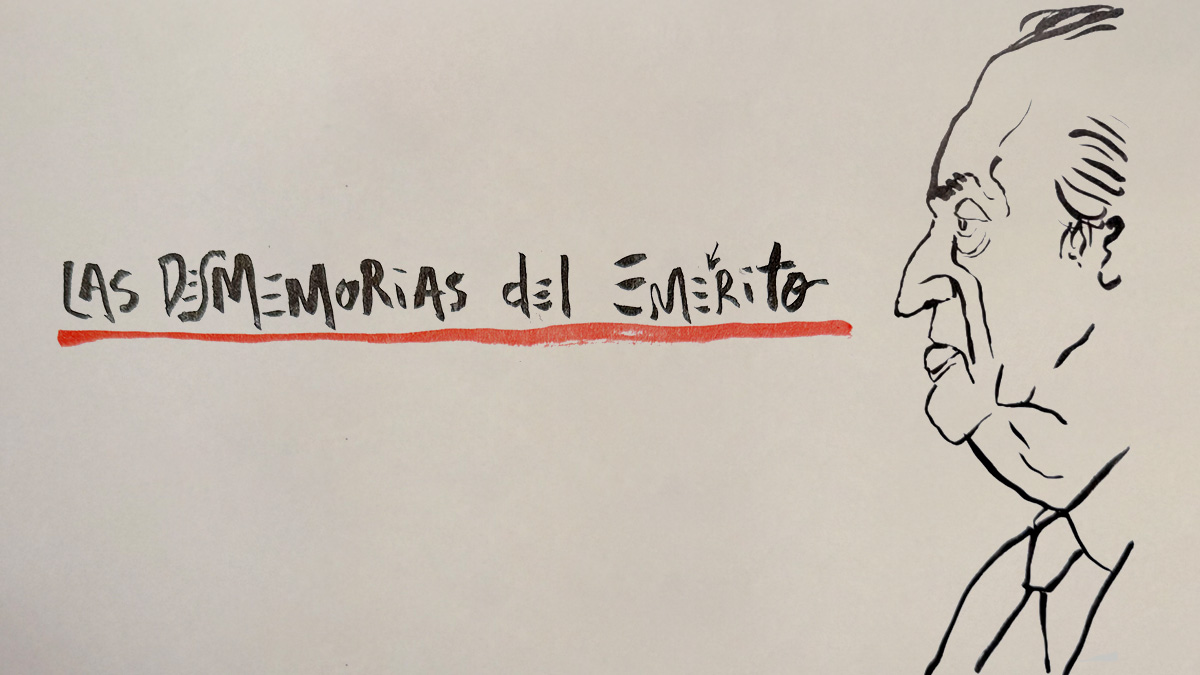 LAS DESMEMORIAS del EMÉRito